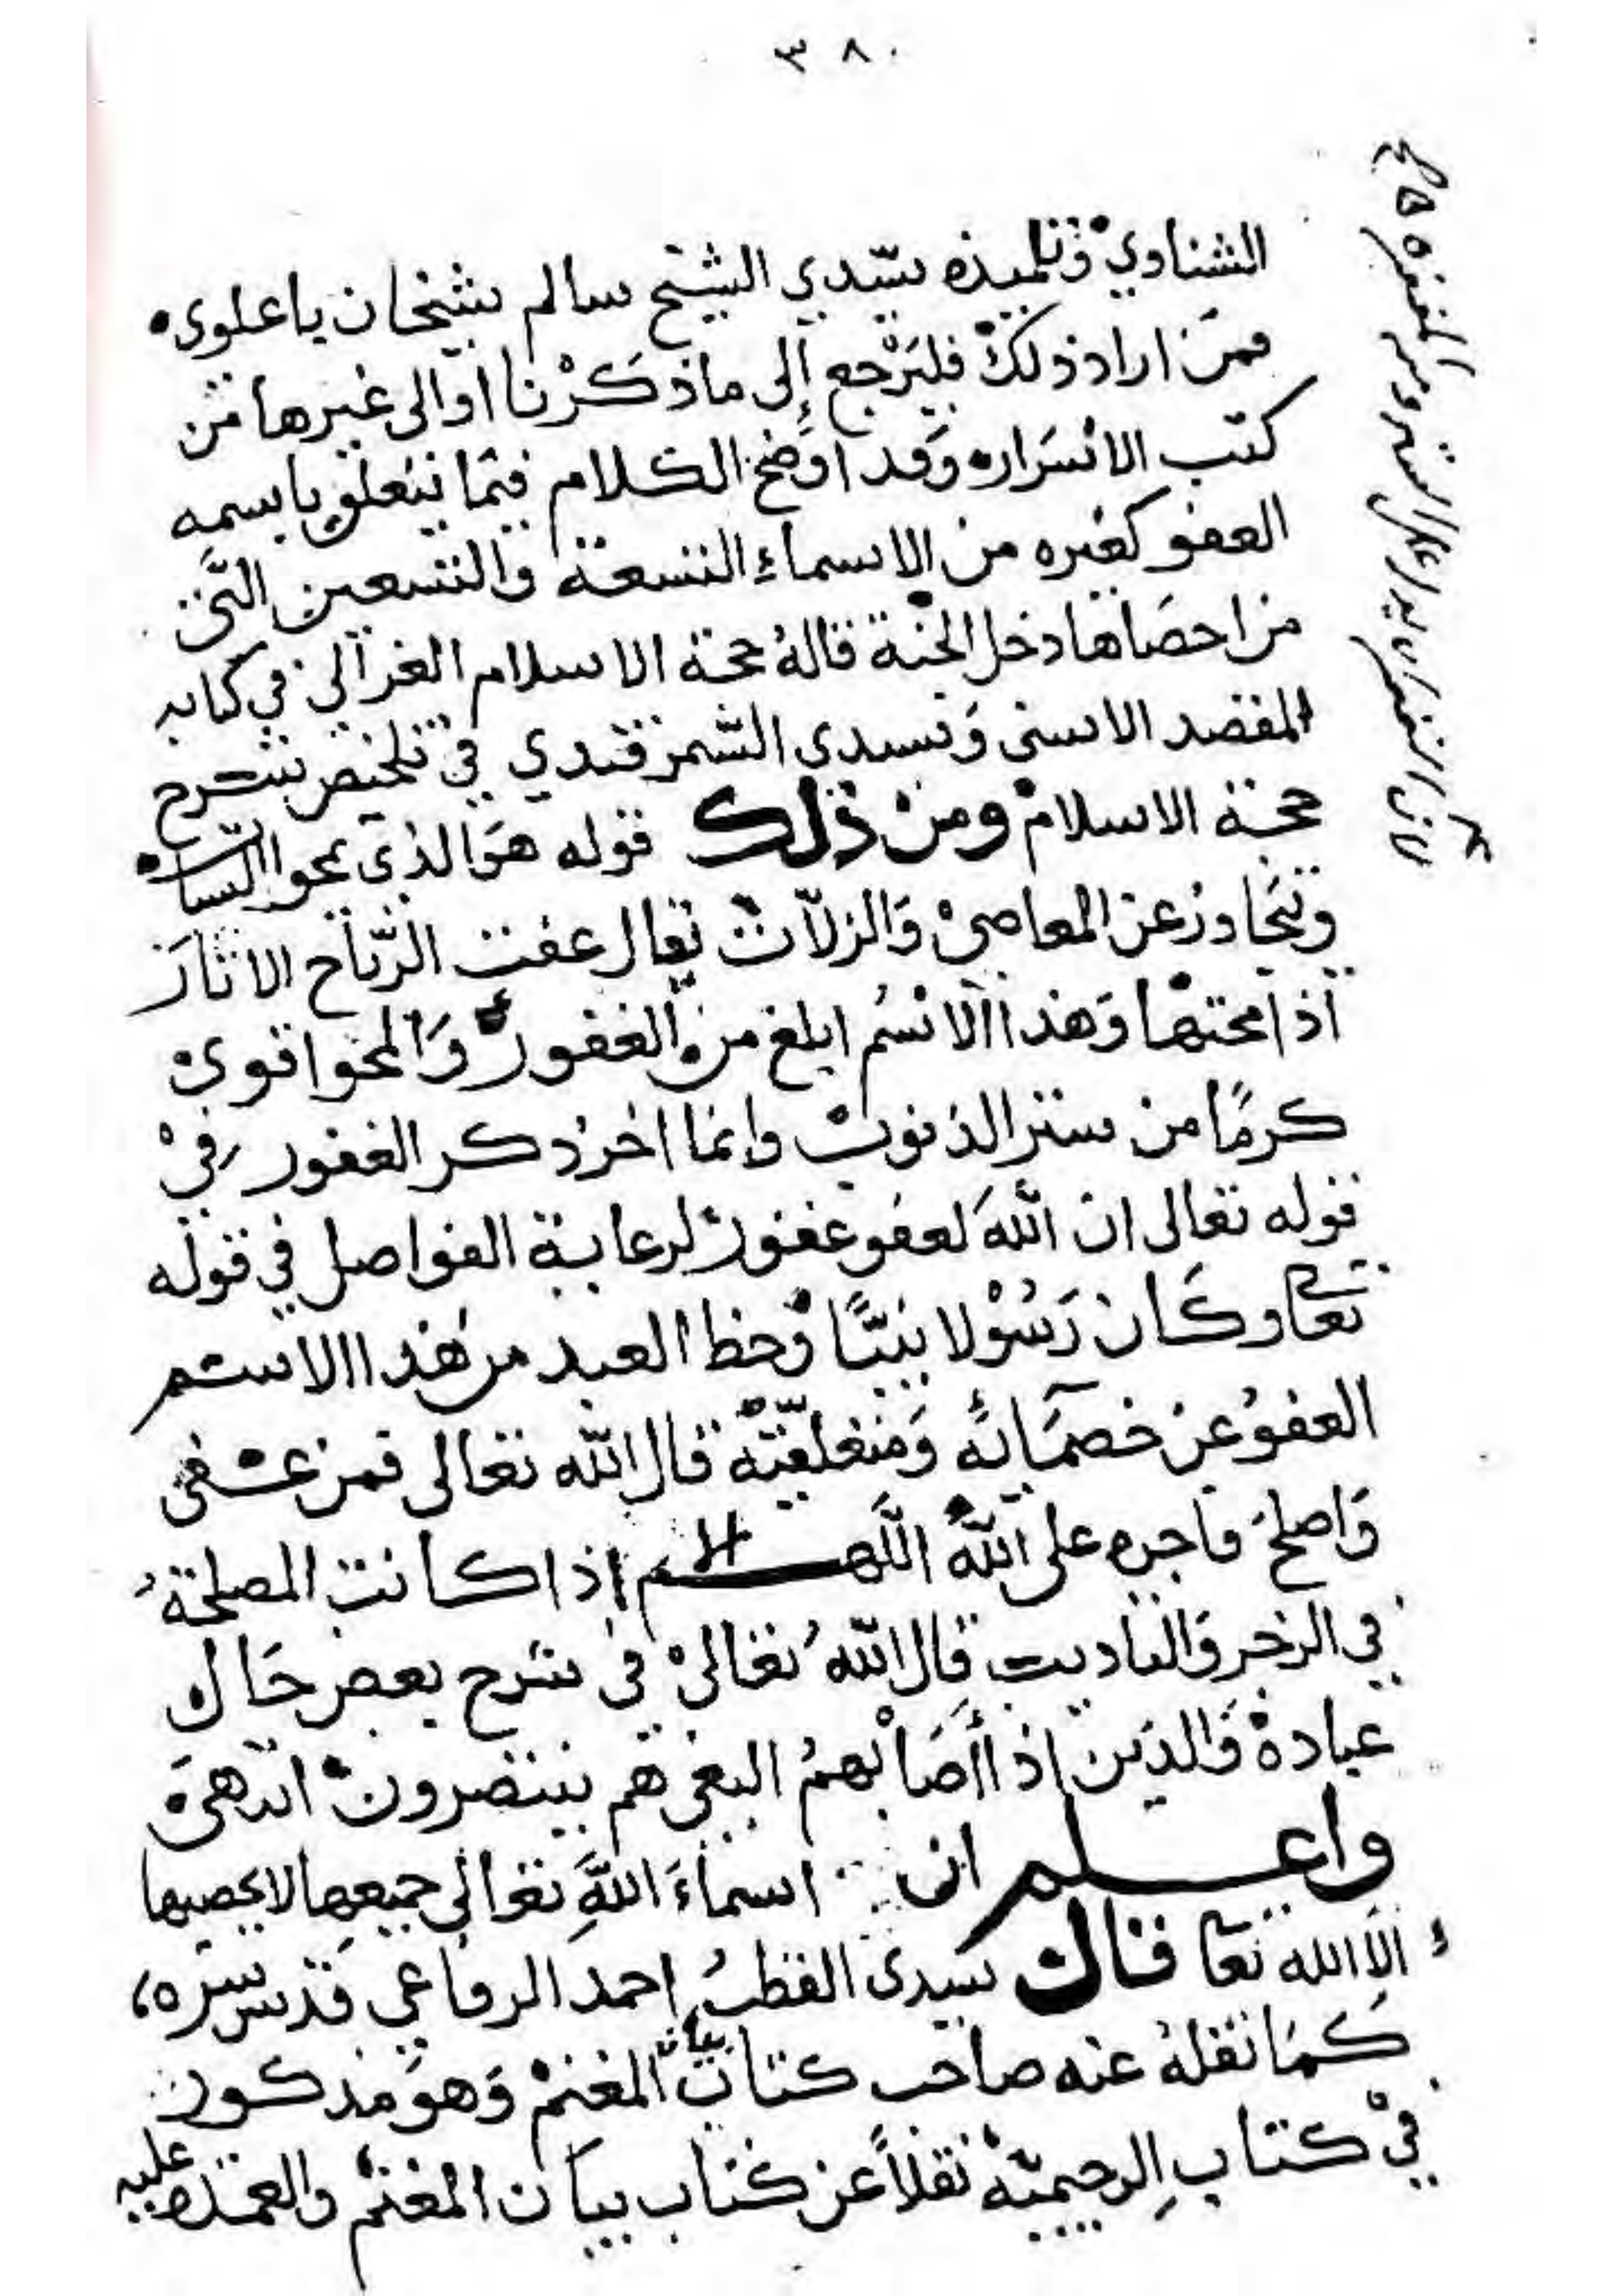 ٣٨٠
الشناوي وتلميذه سيدي الشيخ سالم شيخان باعلوي
فمن اراد ذلك فليرجع إلى ما ذكرنا او الى غيرها من
كتب الاسرار وقد اوضح الكلام فيما يتعلق باسمه
العفو كغيره من الاسماء التسعة والتسعين التي
من احصاها دخل الجنة قاله حجة الاسلام الغزالي في كتابه
المقصد الاسنى وسيدي السمرقندي في تلخيص شرح
حجة الاسلام ومن ذلك قوله هو الذي يمحوا السيات
ويتجاوز عن المعاصي والزلات يقال عفت الرياح الاثار
اذا محتها وهذا الاسم ابلغ من الغفور والمحو اقوى
كرما من ستر الذنوب وانما اخر ذكر الغفور في
قوله تعالى ان الله لعفو غفور لرعاية الفواصل في قوله
تعا وكان رسولا نبيا وحظ العبد من هذا الاسم
العفو عن خصمائه ومتعلقيه قال الله تعالى فمن عفى
واصلح فاجره على الله اللهم الا اذا كانت المصلحة
في الزجر والتاديب قال الله تعالى في شرح بعض حال
عباده والذين اذا أصابهم البغي هم ينتصرون انتهى
واعلم ان اسماء الله تعالى جميعها لا يحصيها
إلا الله تعا قال سيدى القطب احمد الرفاعي قدس سره،
كما نقله عنه صاحب كتاب بيان المغنم وهو مذكور
في كتاب الرحيمية نقلا عن كتاب بيان المغنم والعمدة عليه